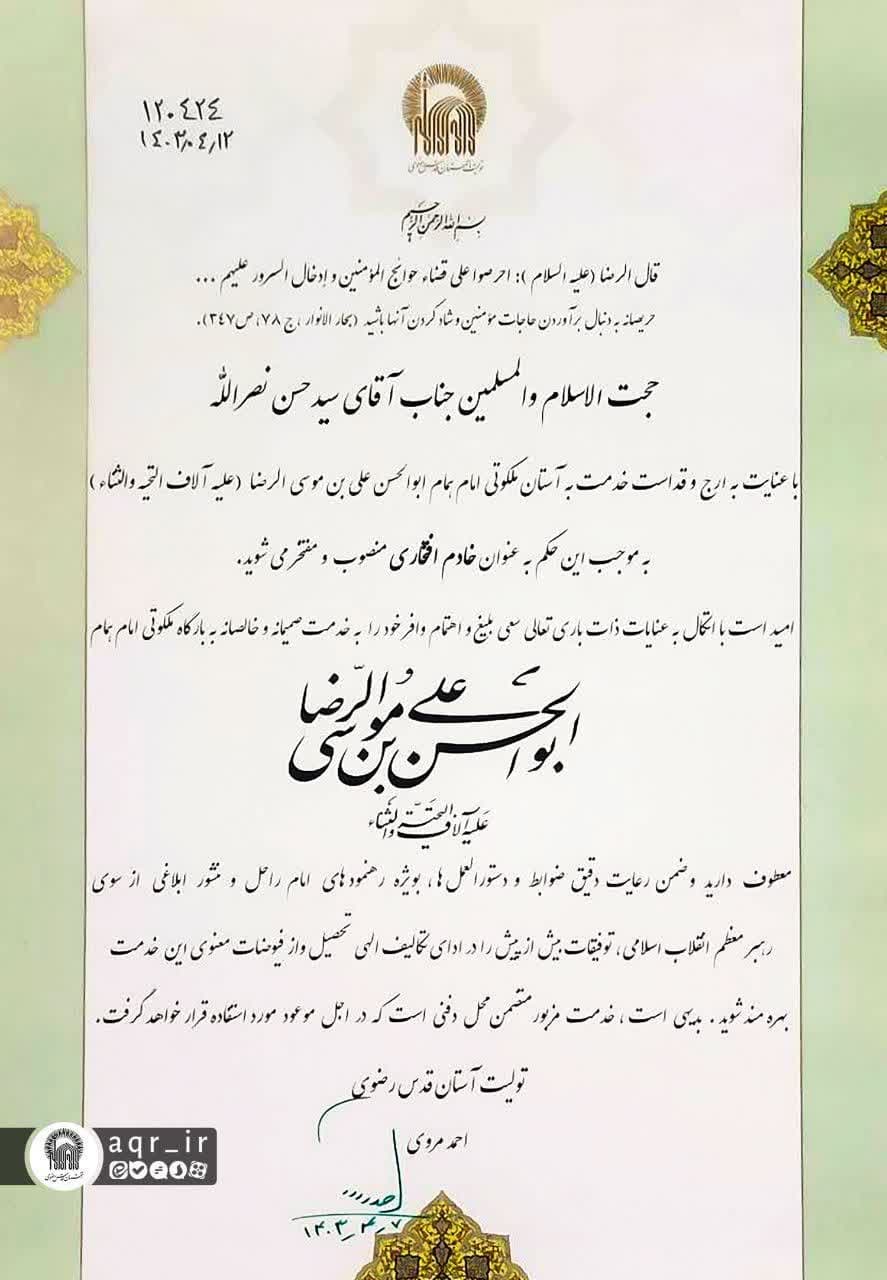 ۱۲۰۴۲۴
۱۴۰۳٫۰۴٫۱۲
تولیت آستان قدس رضوی
بسم الله الرحمن الرحیم
قال الرضا (علیه السلام): احرصوا علی قضاء حوائج المؤمنین و إدخال السرور علیهم ...
حریصانه به دنبال برآوردن حاجات مؤمنین و شاد کردن آنها باشید (بحار الانوار، ج ۷۸، ص ۳۴۷).
حجت الاسلام والمسلمین جناب آقای سید حسن نصرالله
با عنایت به ارج و قداست خدمت به آستان ملکوتی امام همام ابوالحسن علی بن موسی الرضا (علیه آلاف التحیه والثناء)
به موجب این حکم به عنوان خادم افتخاری منصوب و مفتخر می شوید.
امید است با اتکال به عنایات ذات باری تعالی سعی بلیغ و اهتمام وافر خود را به خدمت صمیمانه و خالصانه به بارگاه ملکوتی امام همام
ابوالحسن علی بن موسی الرضا
علیه آلاف التحیة والثناء
معطوف دارید وضمن رعایت دقیق ضوابط و دستورالعمل ها، بویژه رهنمودهای امام راحل و منشور ابلاغی از سوی
رهبر معظم انقلاب اسلامی، توفیقات بیش از پیش را در ادای تکالیف الهی تحصیل واز فیوضات معنوی این خدمت
بهره مند شوید. بدیهی است، خدمت مزبور متضمن محل دفنی است که در اجل موعود مورد استفاده قرار خواهد گرفت.
تولیت آستان قدس رضوی
احمد مروی
۱۴۰۳٫۴٫۷
aqr_ir